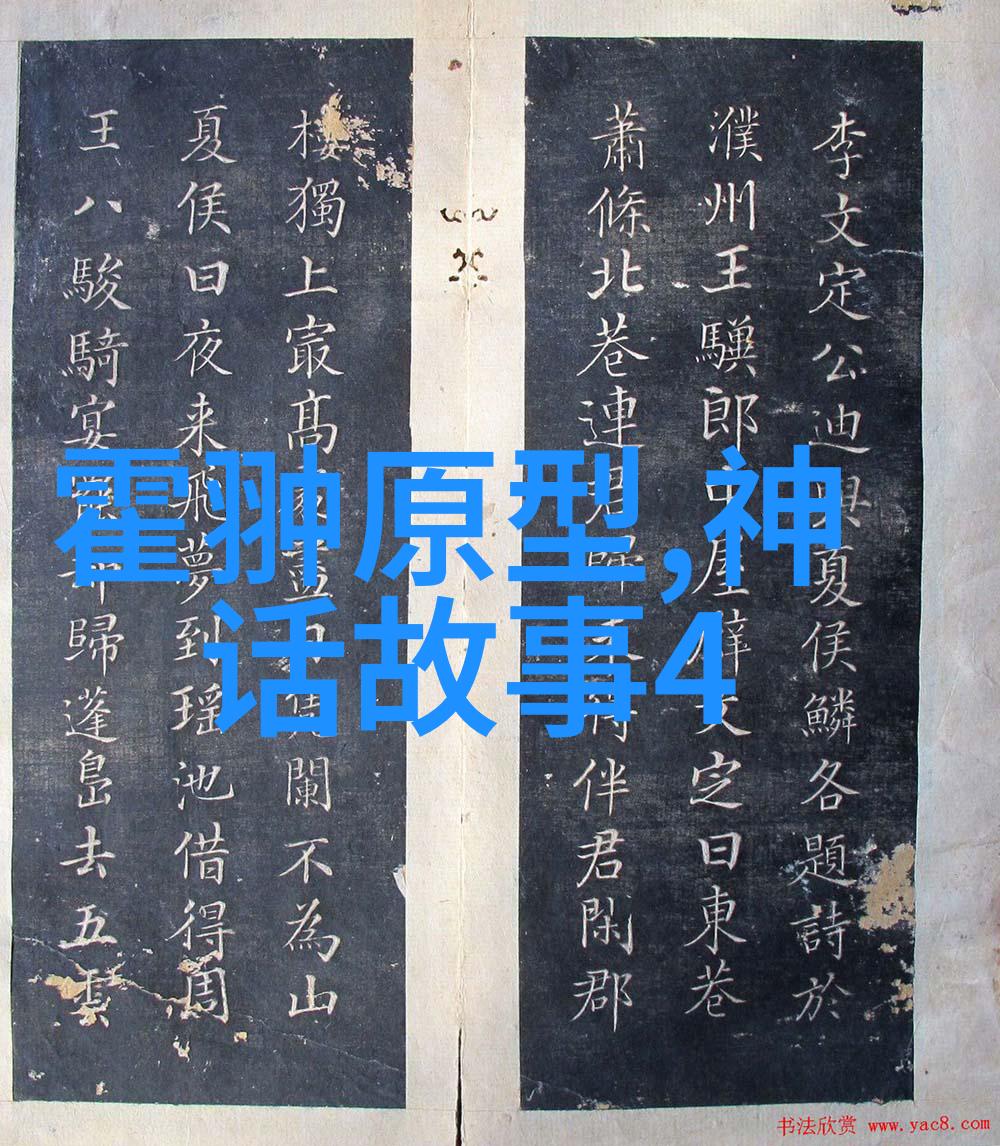 李文定公迪與夏侯鱗各題詩於
濮州王郎中屋文定曰東巷
蕭條北巷連歸伴君閑郡
樓獨上最高闌不為山
夏侯曰夜来飛夢到瑶池借得周
王八駿騎宴歸蓬島去五雲
霍翀原型,神
话故事4
书法欣赏 www.yac8.com